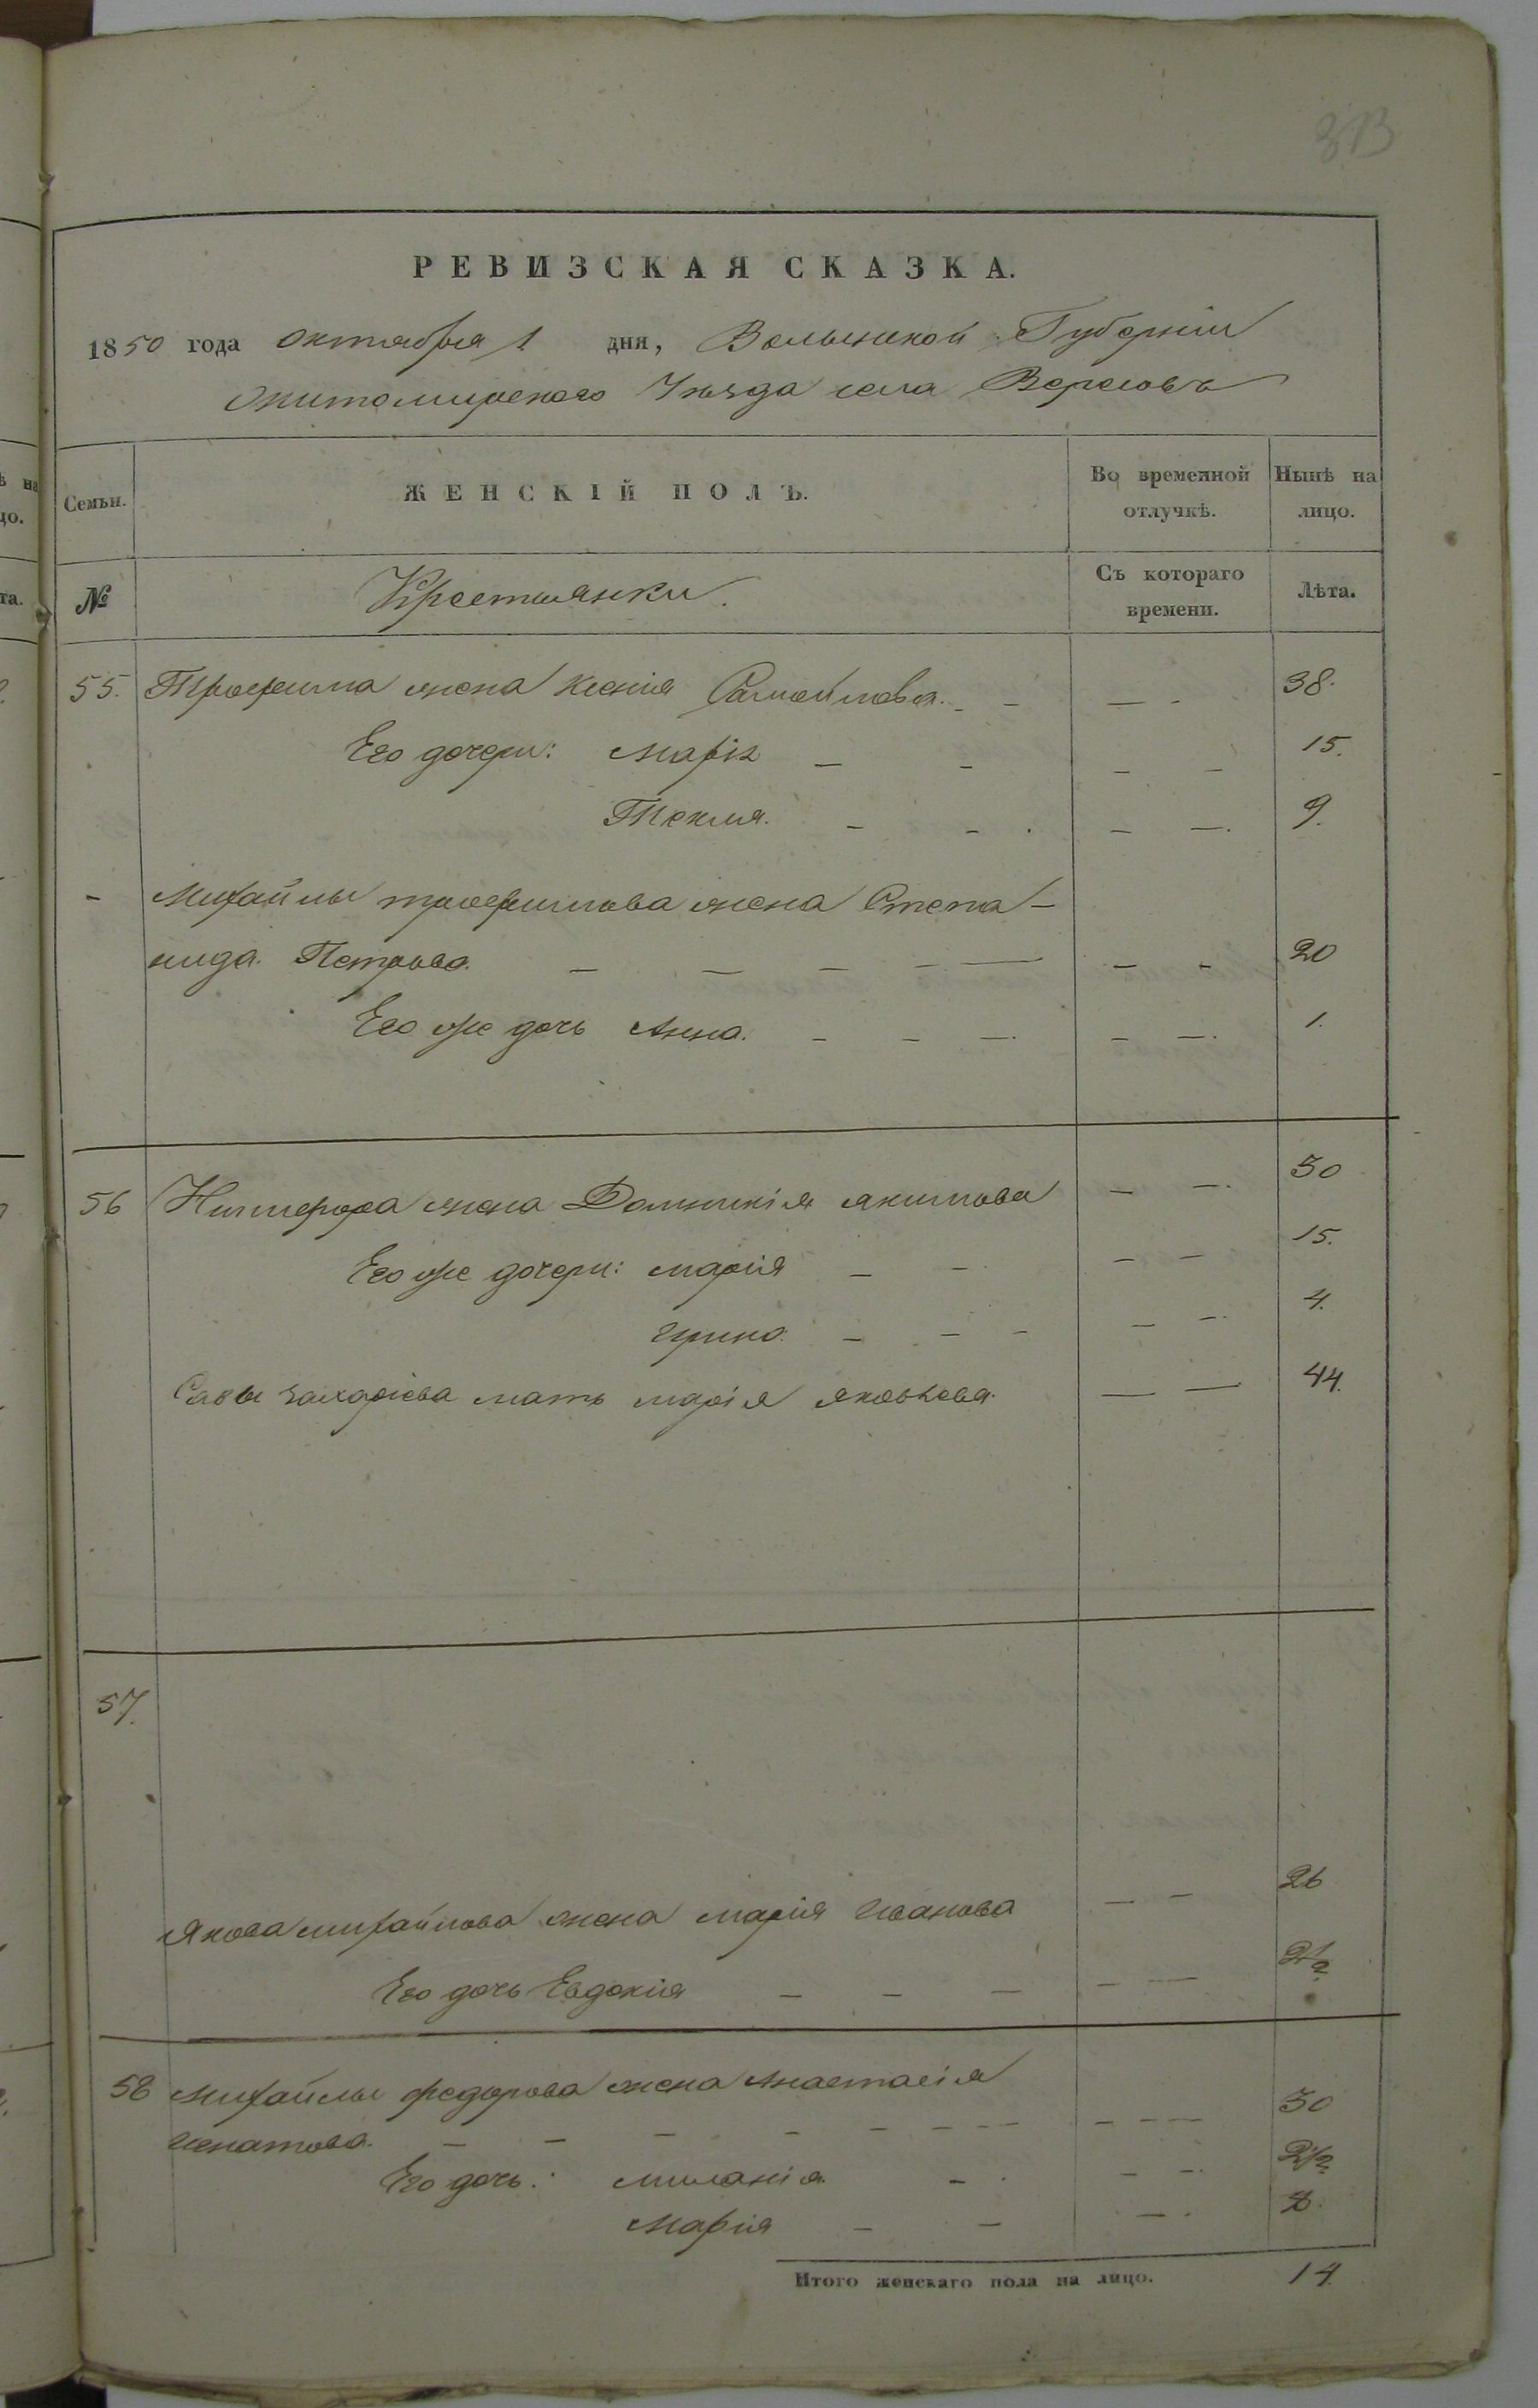 РЕВИЗСКАЯ СКАЗКА.
1850 года октября 1 дня, Волынской Губерніи
Житомирскаго Уѣзда села Вересовъ
Семьи.
ЖЕНСКІЙ ПОЛЪ.
Во временной отлучкѣ.
Нынѣ на лицо.
№
Крестьянки.
Съ котораго времени.
Лѣта.
55. Трофима жена Ксенія Самойлова. - - — - 38.
Его дочери: Марія — - — - 15.
Текля. - - . - —. 9.
- Михайлы трофимова жена Степа-
нида Петрова. — — — - — — - 20
Его же дочь Анна. - - —. - —. 1.
56 Никифора жена Домникія якимова — —. 50
Его же дочери: марія — - — — 15.
ирина. — — - — —. 4.
Савы захаріева мать марія яковлева. — — 44.
57.
Якова михайлова жена марія иванова — — 26
Его дочь Евдокія — — — — — 2½
58 Михайлы федорова жена Анастасія
игнатова. — — — — — — — — — 30
Его дочь: миланія. - . — —. 2½
Марія — — — .
Итого женскаго пола на лицо. 14.